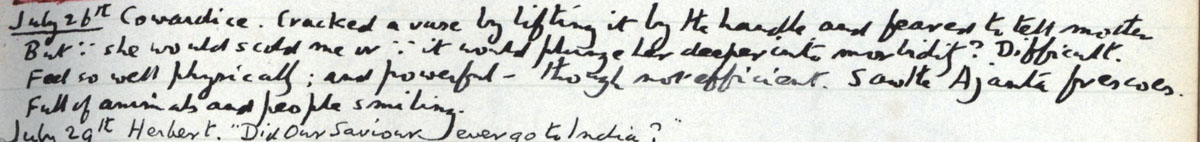 July 26th Cowardice. Cracked a vase by lifting it by the handle and feared to tell mother
But ∵ she would scold me or ∵ it would plunge her deeper into morbidity? Difficult.
Feel so well physically; and powerful – though not efficient. Saw the Ajanta frescoes.
Full of animals and people smiling.
July 29th Herbert. "Did Our Saviour ever go to India?"